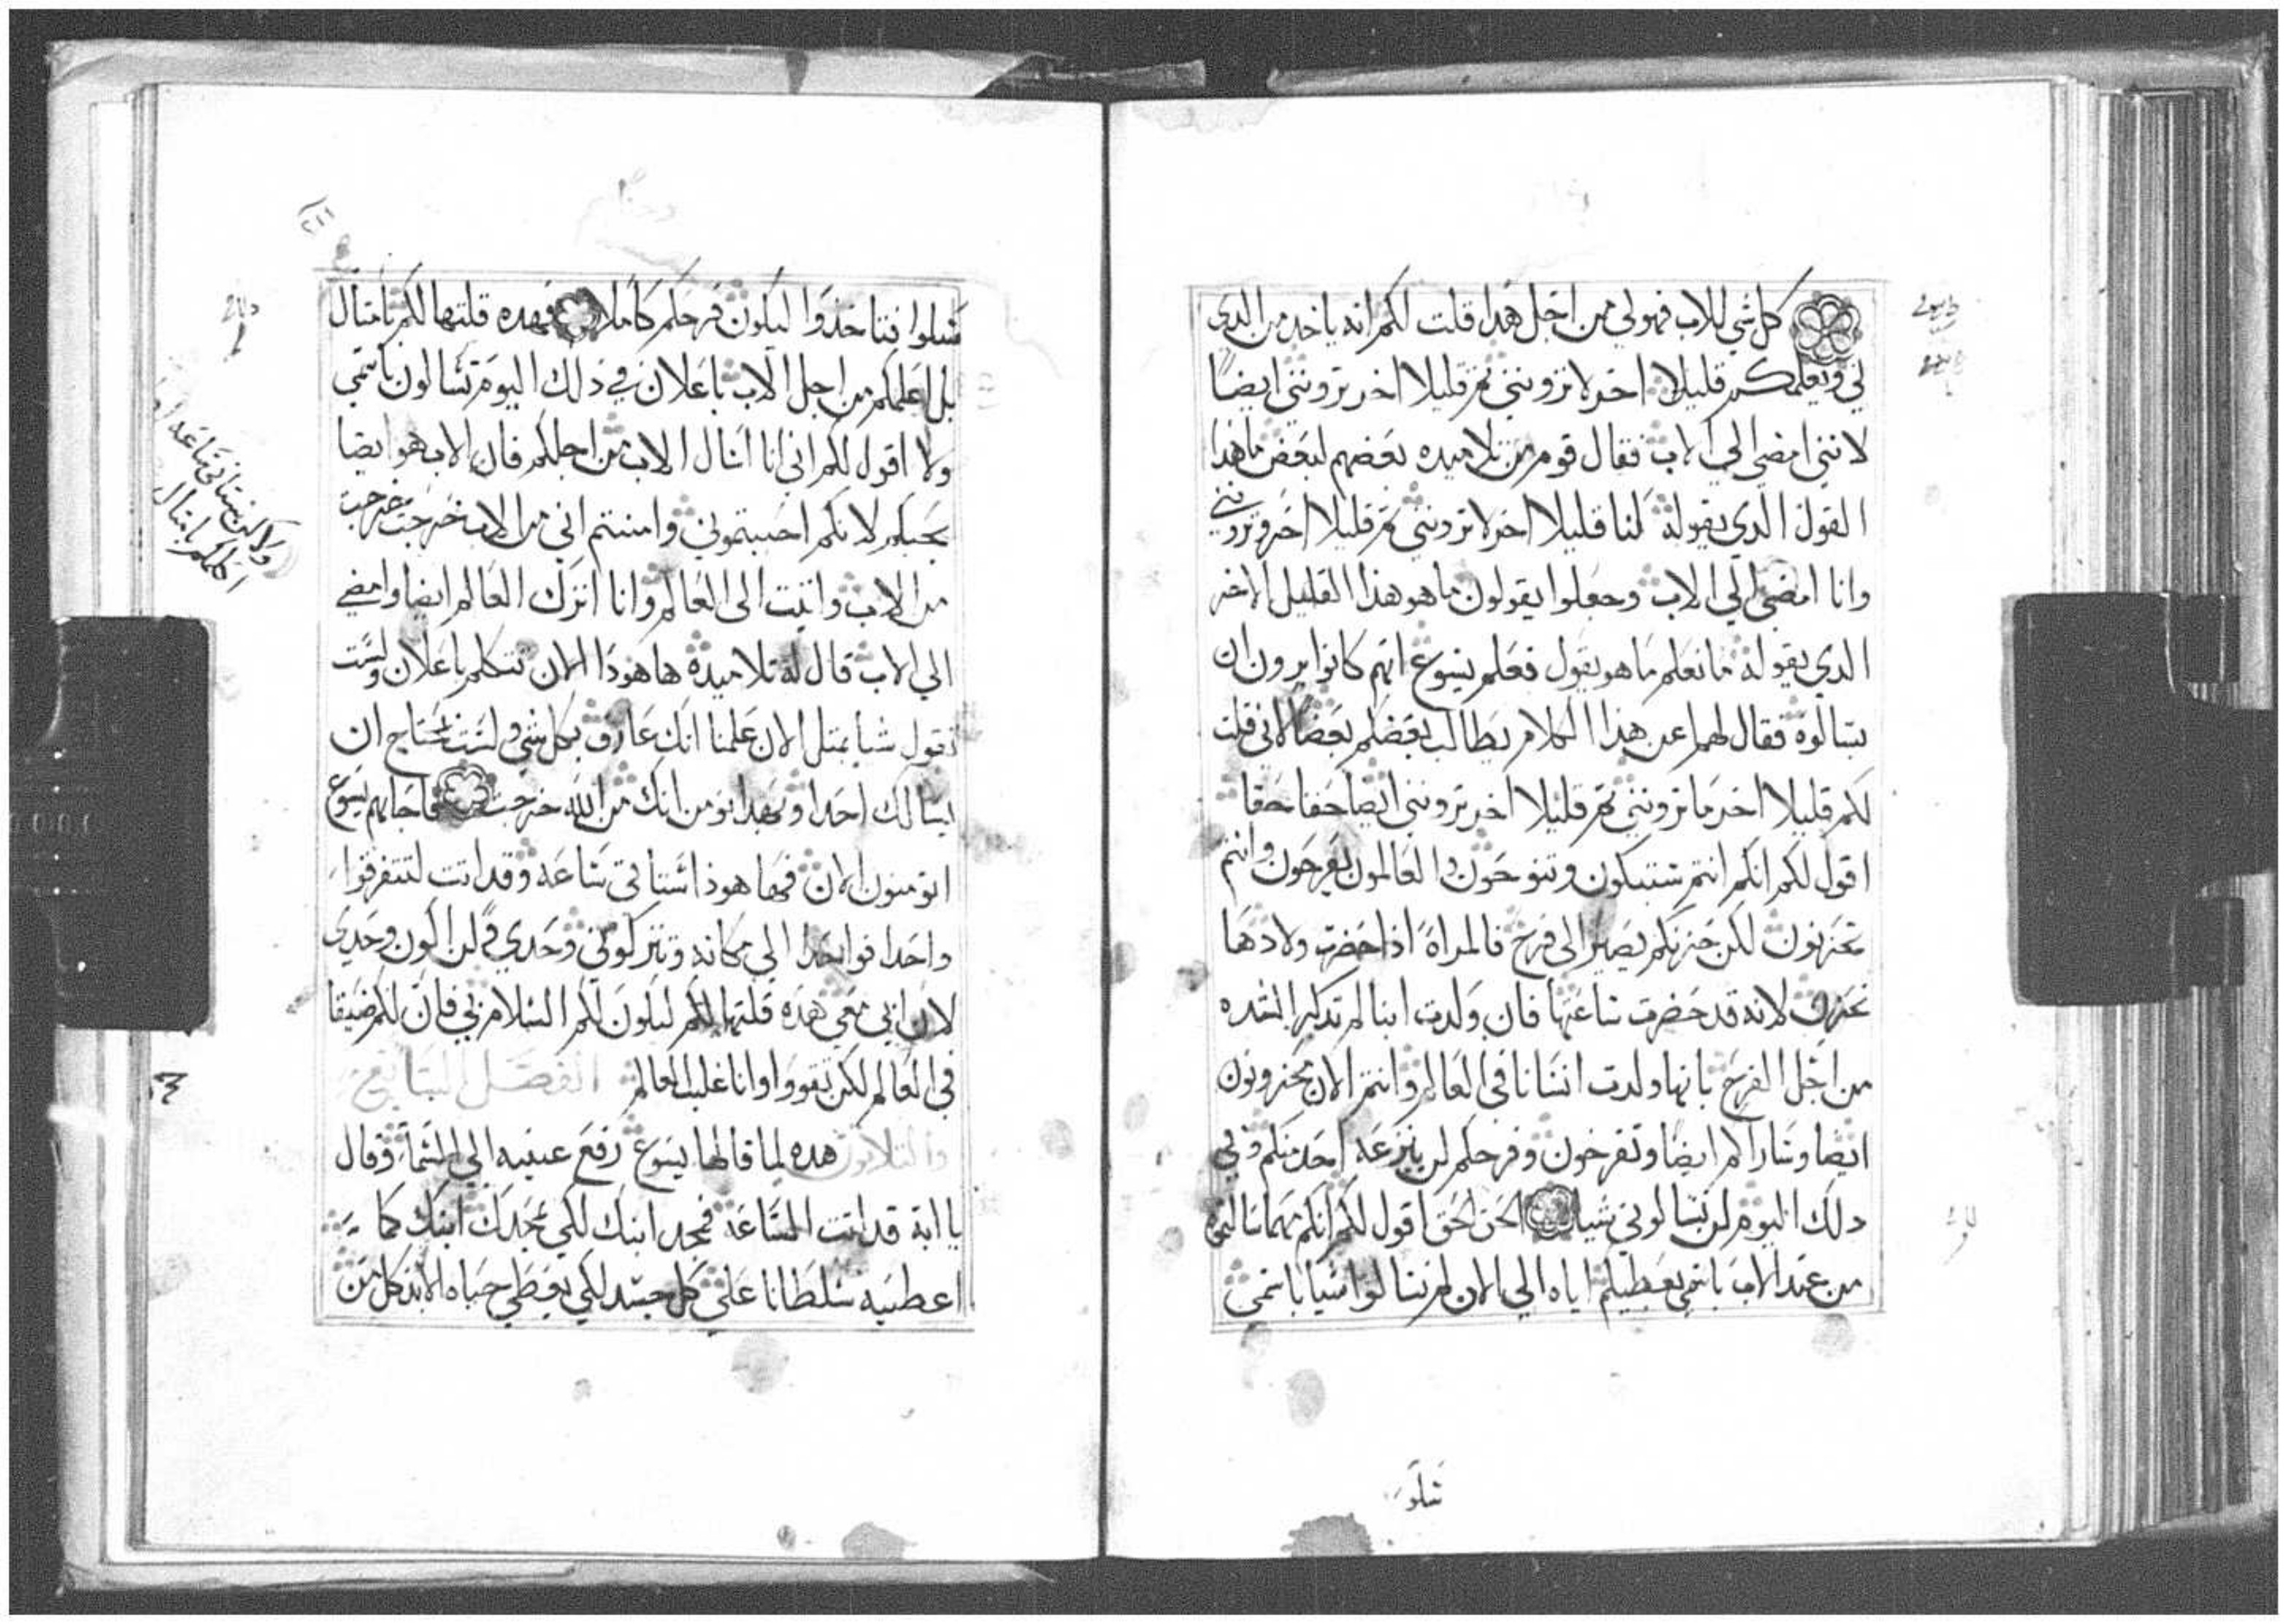 كل شي للاب فهو لي من اجل هدا قلت لكم انه ياخد من الدي
لي ويعلمكم قليلا اخر لا تروننى تم قليلا اخر تروننى ايضا
لاننى امضي الي الاب فقال قوم من تلاميده بعضهم لبعض ما هدا
القول الدي يقوله لنا قليلا اخر لا تروننى تم قليلا اخر وتروننى
وانا امضي الي الاب وجعلوا يقولون ما هو هذا القليل الاخر
الدي يقوله ما نعلم ما هو يقول فعلم يسوع انهم كانوا يرون ان
يسالوه فقال لهم اعن هذا الكلام يطالب بعضكم بعضا لاني قلت
لكم قليلا اخر ما تروننى تم قليلا اخر تروننى ايضا حقا حقا
اقول لكم انكم انتم ستبكون وتنوحون والعالمون يفرحون وانتم
تحزنون لكن حزنكم يصير الى فرح فالمراة اذا حضرت ولادها
تحزن لانه قد حضرت ساعتها فان ولدت ابنا لم تدكر الشده
من اجل الفرح بانها ولدت انسانا في العالم وانتم الان محزونون
ايضا وساراكم ايضا وتفرحون وفرحكم لن ينزعه احد منكم وفي
دلك اليوم لن تسالوني شيا الحق الحق اقول لكم انكم مهما سالتم
من عند الاب باسمي يعطيكم اياه الي الان لم تسالوا شيا باسمي
سلوا
سلوا فتاخذوا ليكون فرحكم كاملا فهده قلتها لكم بامتال
ولاكن ستاتي ساعه
اكلمكم بامتال
بل اعلمكم من اجل الاب باعلان في ذلك اليوم تسالون باسمي
ولا اقول لكم اني انا اسال الاب من اجلكم فان الاب هو ايضا
يحبكم لانكم احببتموني وامنتم اني من الاب خرجت خرجت
من الاب واتيت الى العالم وانا اترك العالم ايضا وامضي
الي الاب قال له تلاميده ها هودا الان تتكلم باعلان ولست
تقول شيا بمتل الان علمنا انك عارف بكل شي ولست تحتاج ان
يسالك احدا وبهدا نومن انك من الله خرجت فاجابهم يسوع
اتومنون الان فها هوذا ستاتي ساعه وقد اتت لتتفرقوا
واحدا فواحدا الي مكانه وتتركوني وحدي ولن اكون وحدي
لان ابي معي هده قلتها لكم ليكون لكم السلام بي فان لكم ضيقا
في العالم لكن تقووا وانا غلبت العالم الفصل السابع
والتلاتون هده لما قالها يسوع رفع عينيه الي السما وقال
يا ابة قد اتت الساعه فمجد ابنك لكي يمجدك ابنك كما
اعطيته سلطانا على كل جسد لكي يعطي حياه الابد كل من